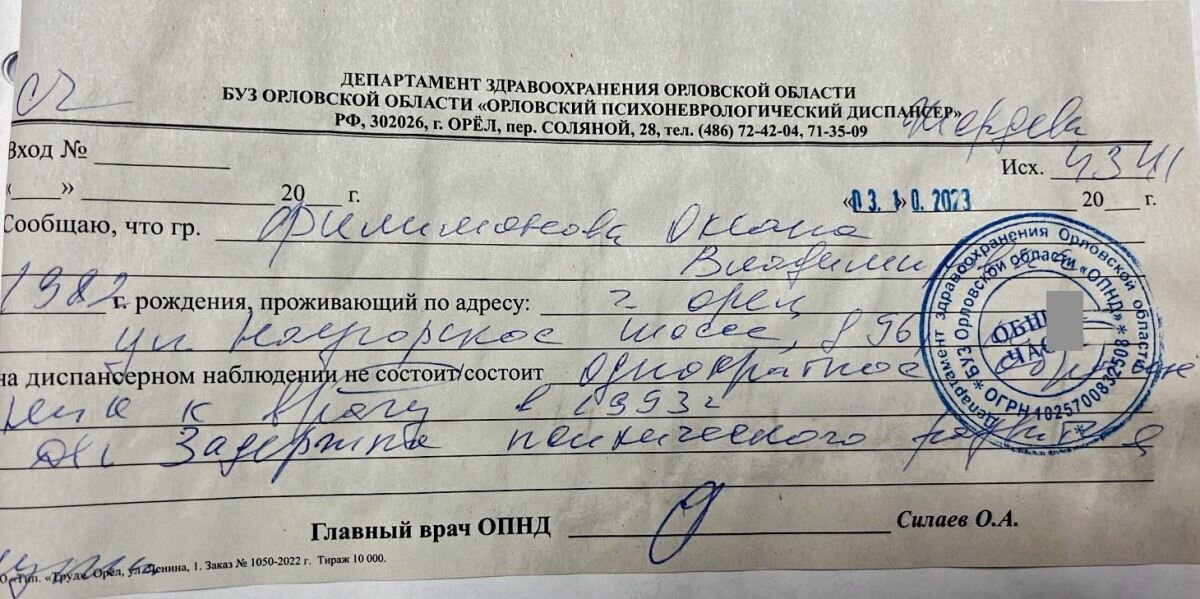 СЧ
ДЕПАРТАМЕНТ ЗДРАВООХРАНЕНИЯ ОРЛОВСКОЙ ОБЛАСТИ
БУЗ ОРЛОВСКОЙ ОБЛАСТИ «ОРЛОВСКИЙ ПСИХОНЕВРОЛОГИЧЕСКИЙ ДИСПАНСЕР»
РФ, 302026, г. ОРЁЛ, пер. СОЛЯНОЙ, 28, тел. (486) 72-42-04, 71-35-09
Жердева
Вход №
Исх. 4341
«___» ___ 20___ г.
«03. 10. 2023 20___ г.
Сообщаю, что гр. Филимонова Оксана
Владими
1982 г. рождения, проживающий по адресу: г. Орел
ул. Наугорское шоссе, д 96
на диспансерном наблюдении не состоит/состоит однократное обраще
ние к врачу в 1993г
Ds: Задержка психического развития
Главный врач ОПНД
Силаев О.А.
«Труд». Орёл, ул. Ленина, 1. Заказ № 1050-2022 г. Тираж 10 000.
Департамент здравоохранения Орловской области
БУЗ Орловской области «ОПНД»
ОГРН 1025700832508